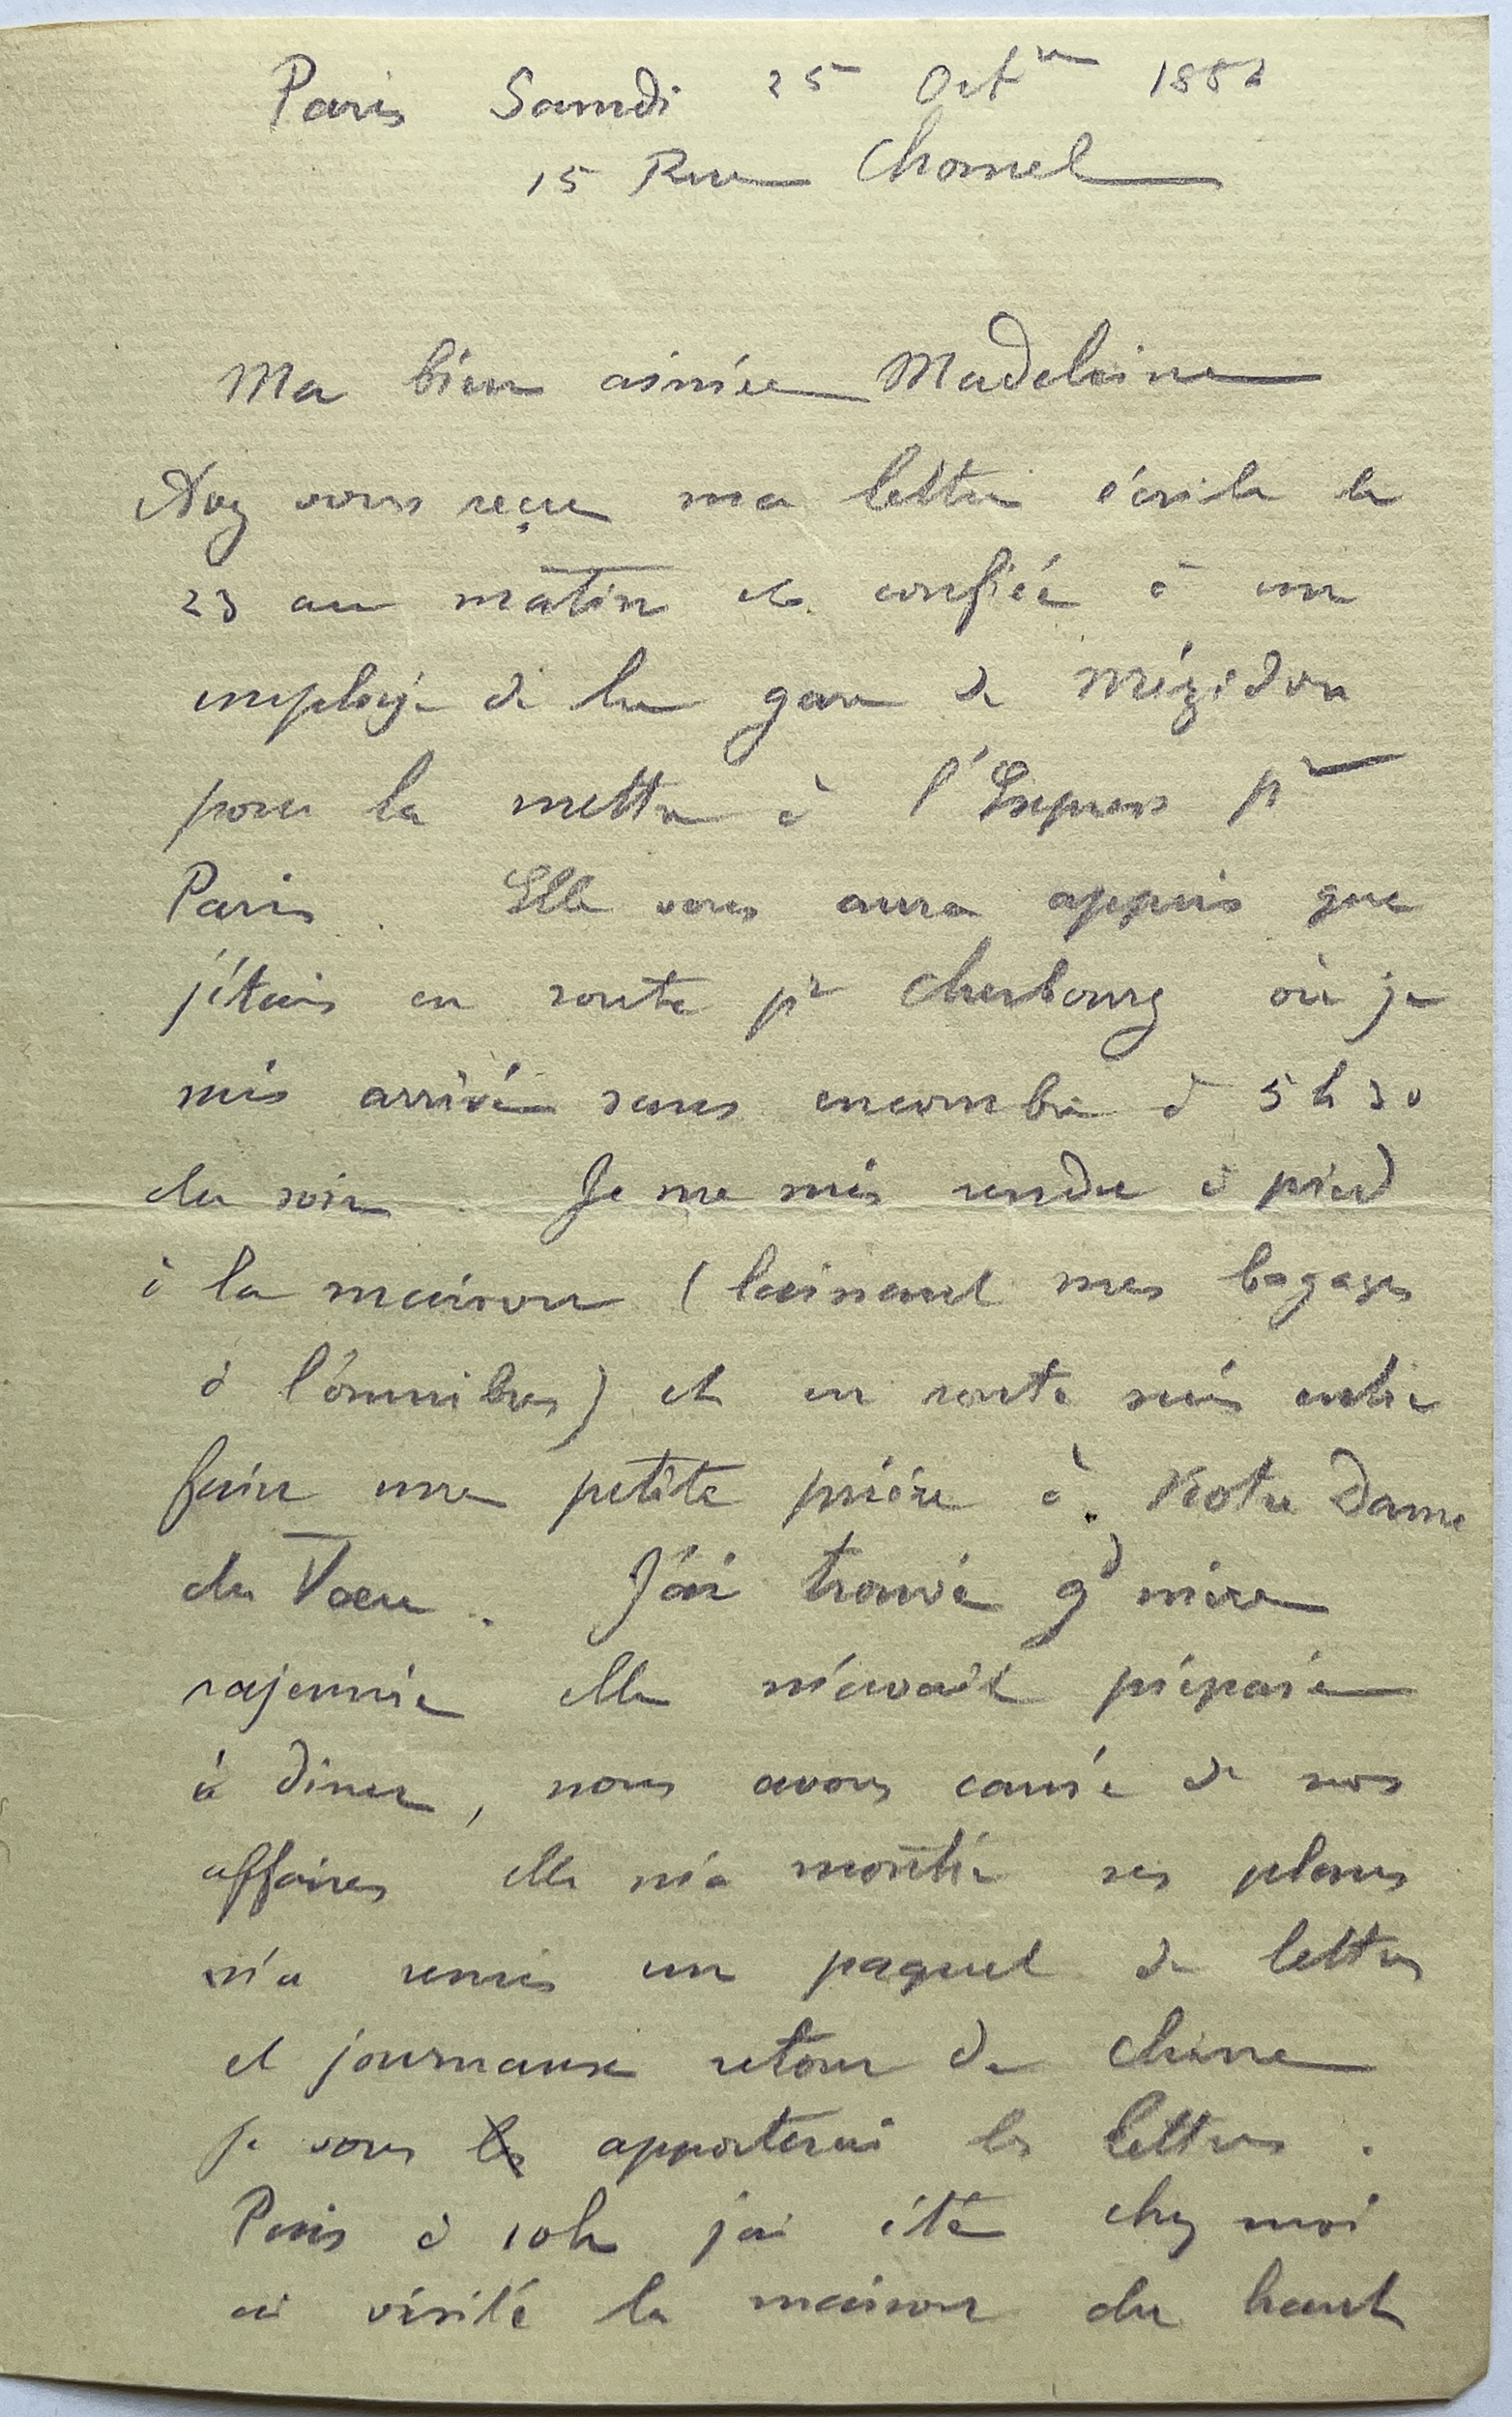 Paris Samedi 25 Octre 1882
15 Rue Chomel
Ma bien aimée Madeleine
Avez vous reçu ma lettre écrite le
23 au matin et confiée à un
employé de la gare de Mézidon
pour la mettre à l'Express pr
Paris. Elle vous aura appris que
j'étais en route pr Cherbourg où je
suis arrivé sans encombre à 5 h 30
du soir. Je me suis rendu à pied
à la maison (laissant mes bagages
à l'omnibus) et en route suis entré
faire une petite prière à Notre Dame
du Voeu. J'ai trouvé gd mère
rajeunie elle m'avait préparé
à diner, nous avons causé de nos
affaires elle m'a montré ses plans
m'a remis un paquet de lettres
et journaux retour de Chine
je vous les apporterai les lettres.
Puis à 10h j'ai été chez moi
ai visité la maison du haut